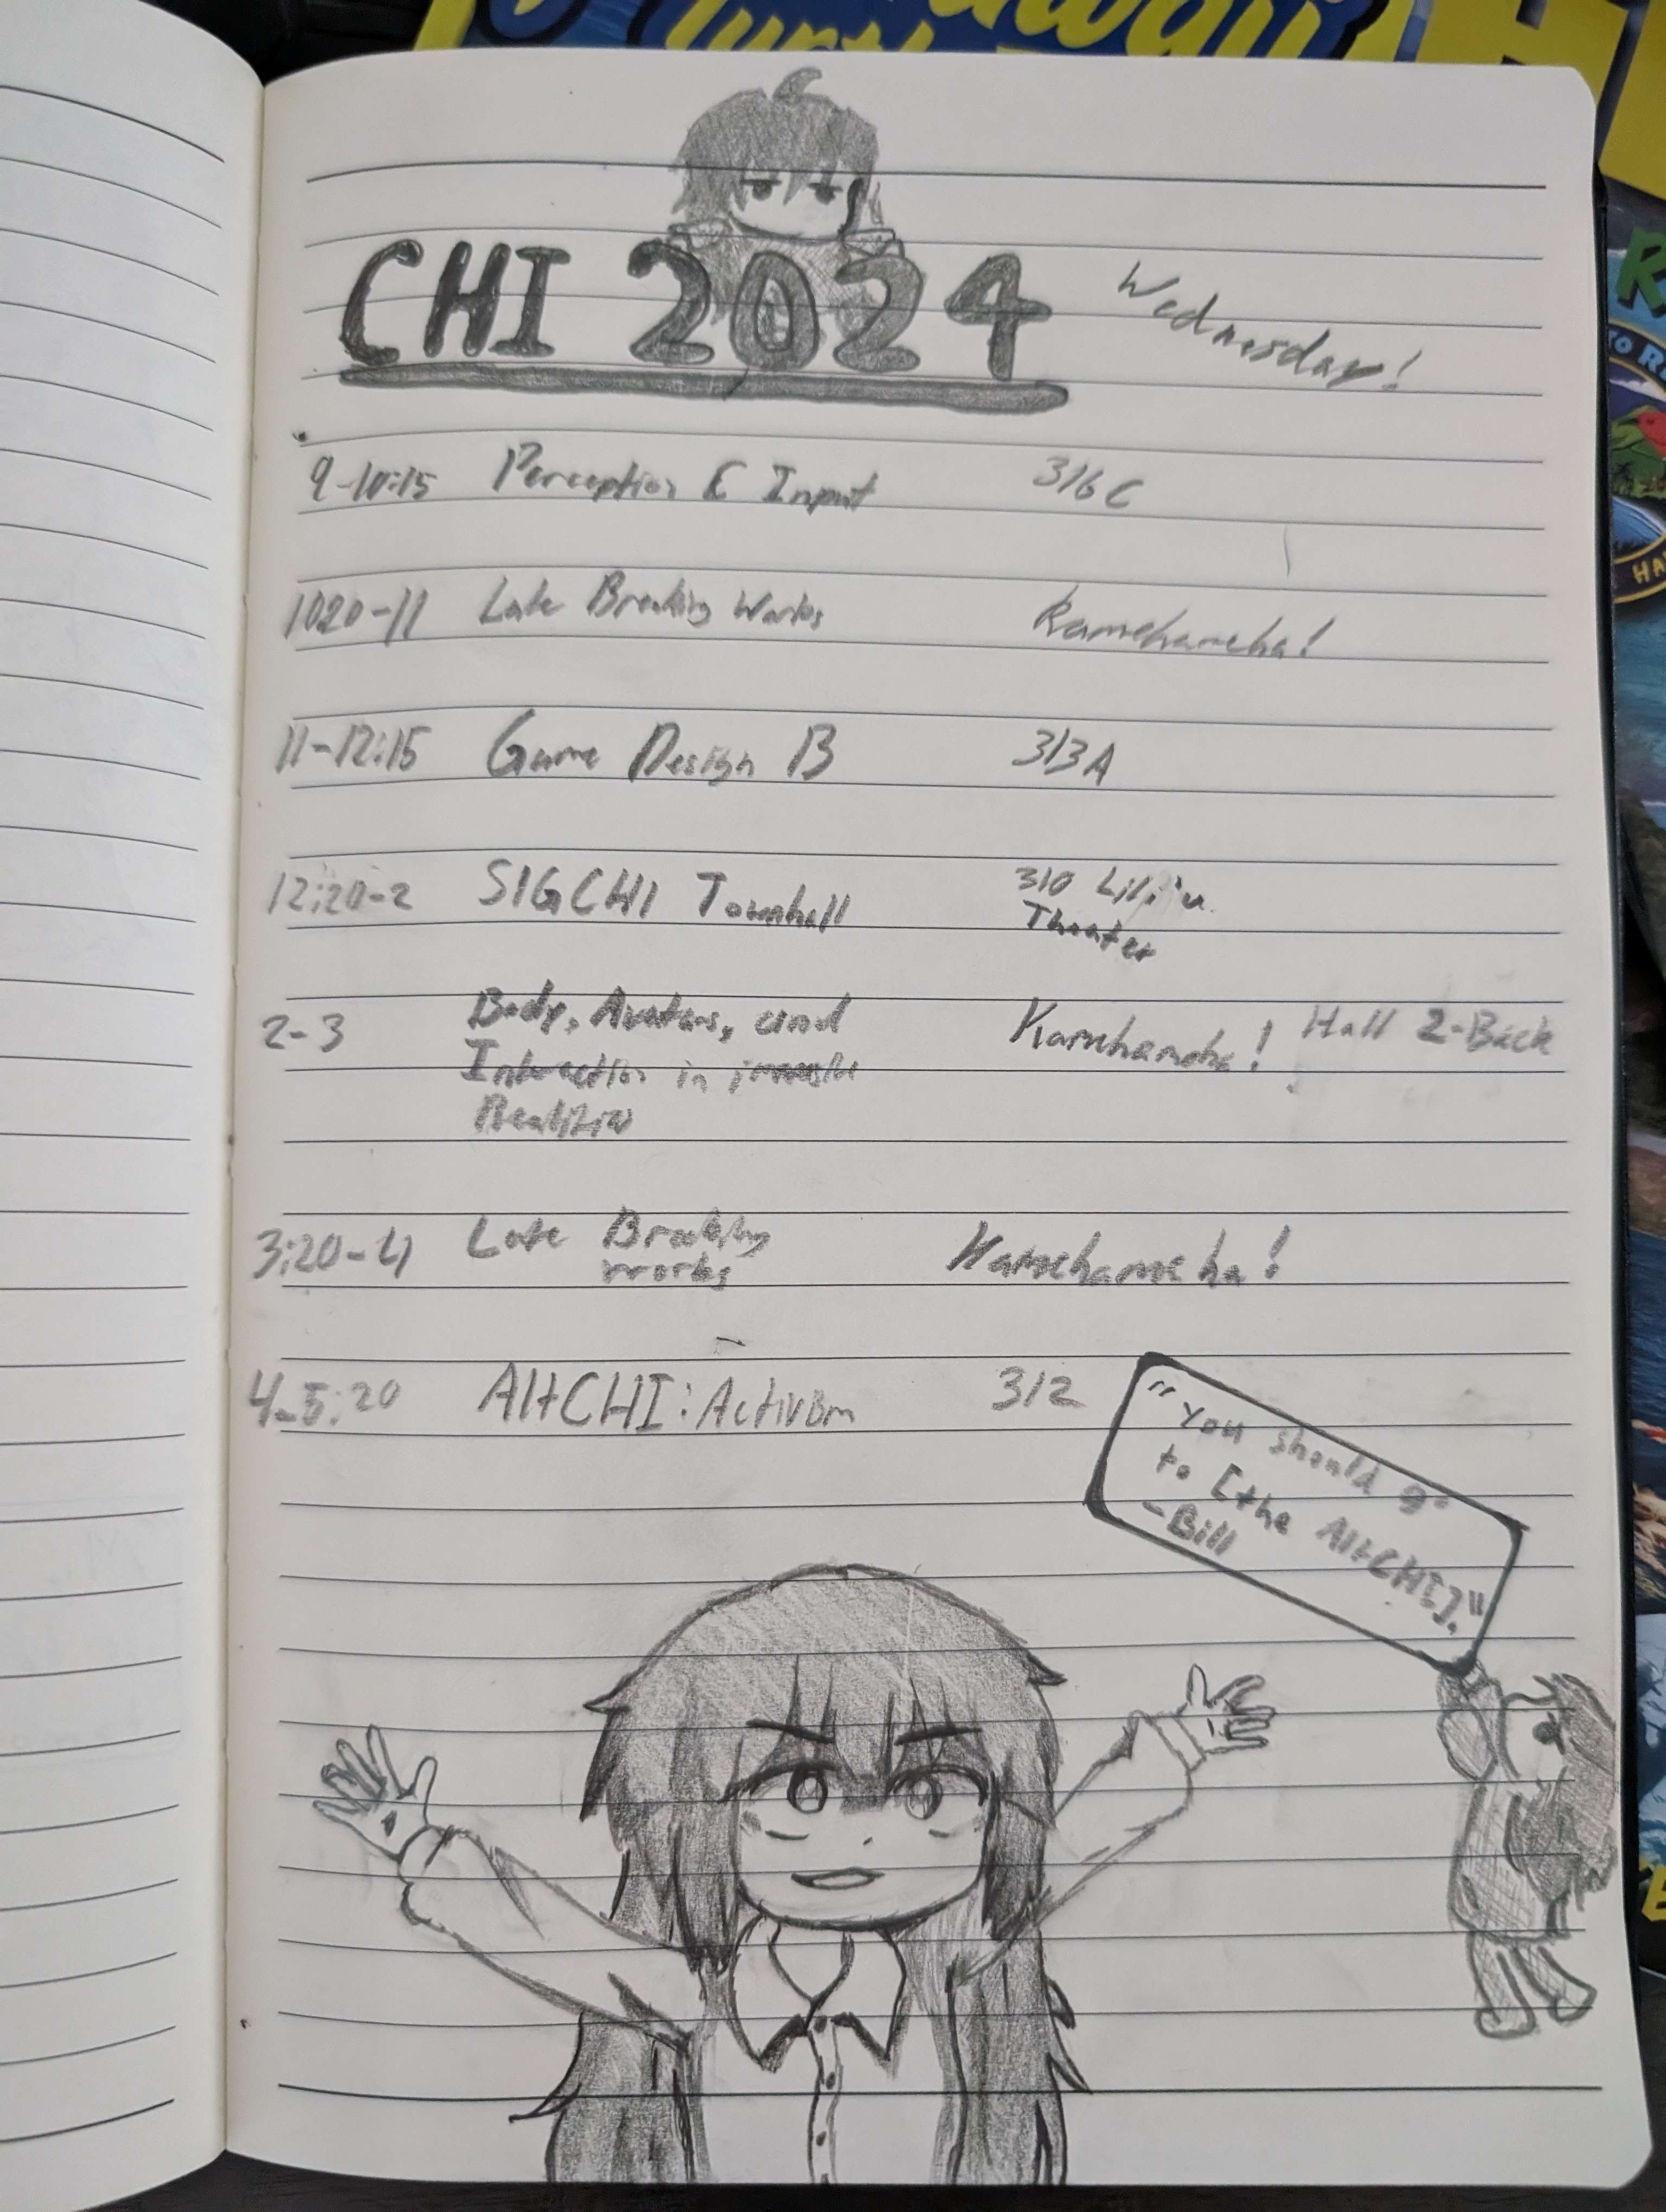 CHI 2024 Wednesday!
9-10:15 Perception & Input 316C
1020-11 Late Breaking Works Kamehameha!
11-12:15 Game Design B 313A
12:20-2 SIGCHI Townhall 310 Lili'u
Theater
2-3 Body, Avatars, and Kamehameha! Hall 2-Back
Interaction in
3:20-4 Late Breaking Kamehameha!
works
4-5:20 AltCHI: Activism 312
"You should go
to [the AltCHI]."
-Bill